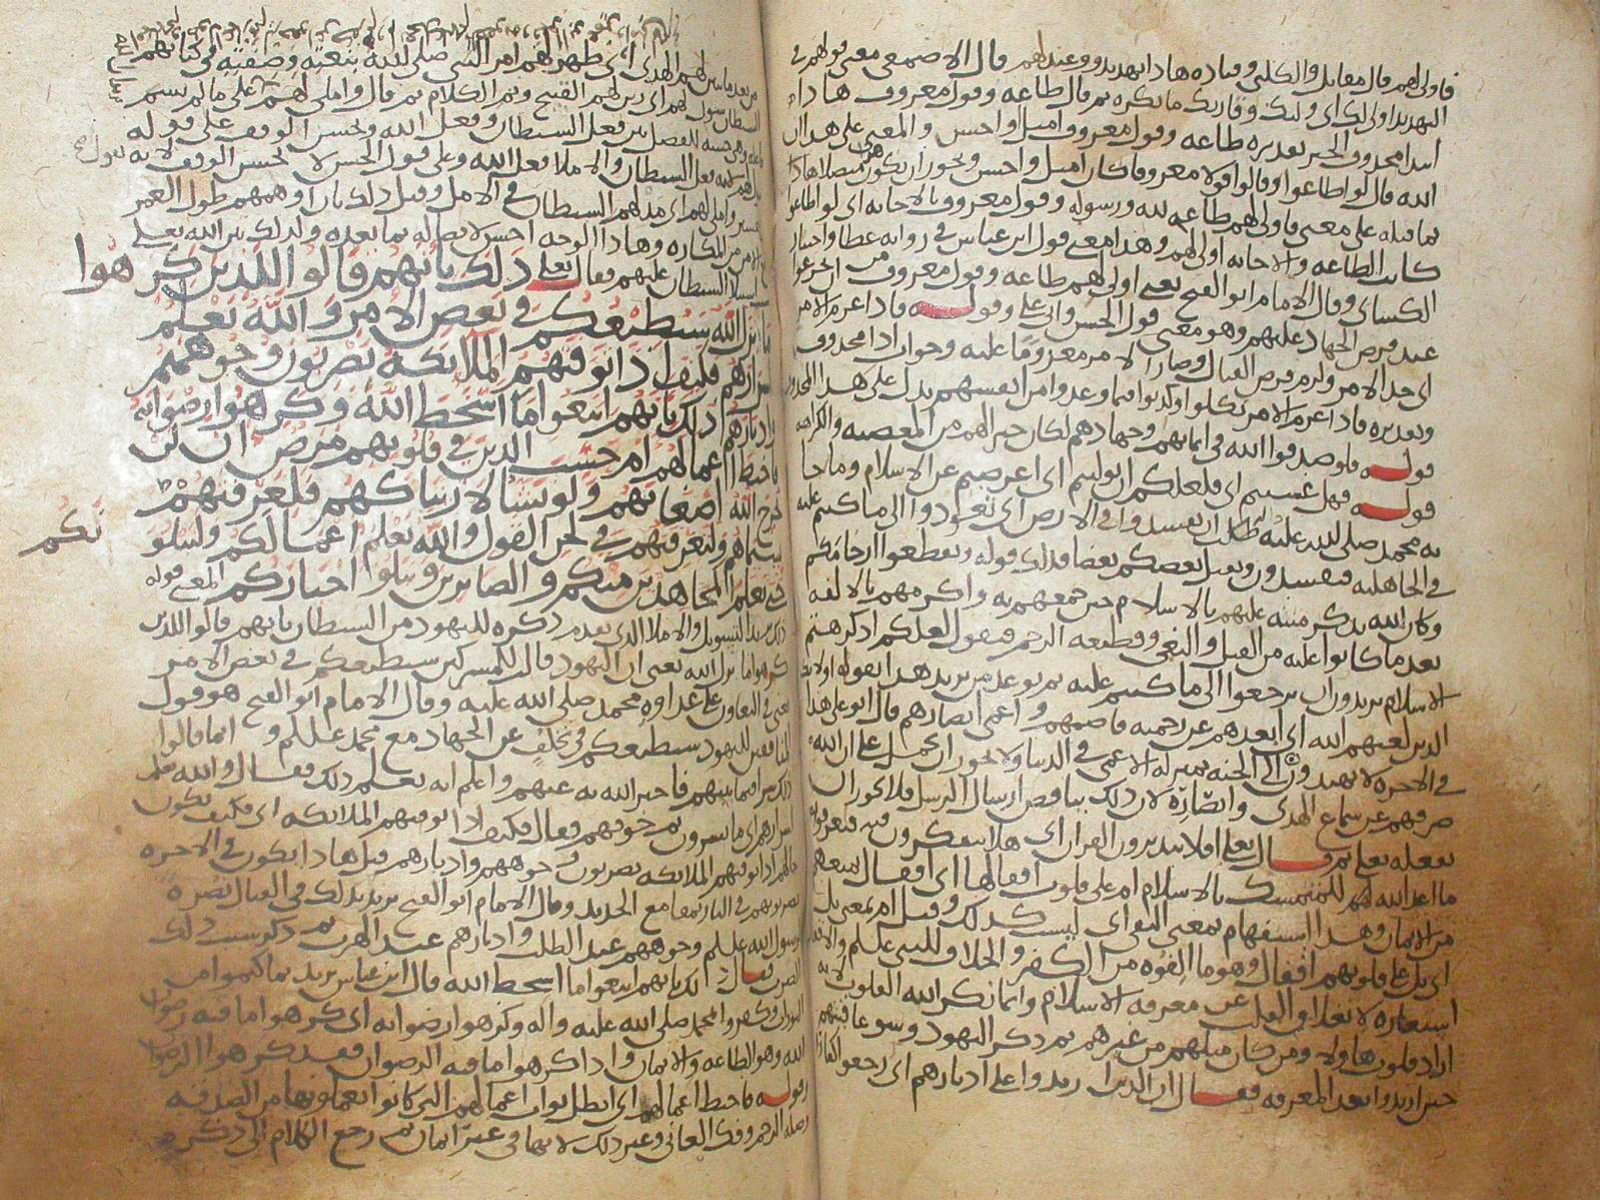 فاولى لهم قال مقاتل والكلبي وقتاده هاذا تهديد ووعيد لهم قال الاصمعي معنى قولهم في
التهديد اولى لك اي وليك وقاربك ما تكره ثم قال طاعه وقول معروف هاذا
ابتدا محذوف الخبر تقديره طاعه وقول معروف امثل واحسن والمعنى على هذا ان
الله قال لو اطاعوا وقالوا قولا معروفا كان امثل واحسن ويجوز ان يكون متصلا هاذا
بما قبله على معنى فاولى لهم طاعه لله ورسوله وقول معروف بالاجابه اي لو اطاعوا
كانت الطاعه والاجابه اولى لهم وهذا معنى قول ابن عباس في روايه عطا واختيار
الكسائي وقال الامام ابو الفتح يعني اولى لهم طاعه وقول معروف من
عند فرض الجهاد عليهم وهو معنى قول الحسن وابي علي وقوله فاذا عزم الامر
اي جد الامر ولزم فرض القتال وصار الامر معزوما عليه وجواب اذا محذوف
وتقديره فاذا عزم الامر نكلوا وكذبوا فيما وعدوا من انفسهم يدل على هذا المحذوف
قوله فلو صدقوا الله في ايمانهم وجهادهم لكان خيرا لهم من المعصيه والكراهه
قوله فهل عسيتم اي فلعلكم ان توليتم اي اعرضتم عن الاسلام وما جا
به محمد صلى الله عليه ان تفسدوا في الارض اي تعودوا الى ما كنتم عليه
في الجاهليه فتفسدون ويقتل بعضكم بعضا فذلك قوله وتقطعوا ارحامكم
وكان الله يذكر منته عليهم بالاسلام حين جمعهم به واكرمهم بالالفه
بعد ما كانوا عليه من القتل والبغي وقطيعه الرحم فيقول لعلكم اذ كرهتم
الاسلام تريدون ان ترجعوا الى ما كنتم عليه ثم يوعد من يريد هذا بقوله اولائك
الذين لعنهم الله اي ابعدهم عن رحمته فاصمهم واعمى ابصارهم قال ابو علي هذا
في الاخره لا يهتدون الى الجنه بمنزله الاعمى في الدنيا ولا يجوز ان يحمل على ان الله
صرفهم عن سماع الهدى وابصاره لان ذلك ينافض ارسال الرسل فلا يجوز ان
يفعله تعلى ثم قال تعلى افلا يتدبرون القران اي هلا يتفكرون فيه فيعرفوا
ما اعد الله لهم للمتمسك بالاسلام ام على قلوب اقفالها اي اقفال تمنعهم
من الايمان وهذا استفهام بمعنى النفي اي ليست كذلك وقيل ام بمعنى بل
اي بل على قلوبهم اقفال وهو ما الفوه من الكفر والخلاف للنبي
استعاره لانغلاق القلب عن معرفه الاسلام وانما نكر الله القلوب لانه
اراد قلوب هاولاء ومن كان مثلهم من غيرهم ثم ذكر اليهود وسوء عاقبتهم
حين ارتدوا بعد المعرفه فقال ان الذين ارتدوا على ادبارهم اي رجعوا كفارا
من بعد ما تبين لهم الهدى اي ظهر لهم امر النبي صلى الله بنعته وصفته في كتابهم
الشيطان سول لهم اي زين لهم القبيح وتم الكلام ثم قال واملى لهم على ما لم يسم
فاعله وهي حسنه للفصل بين فعل الشيطان وفعل الله ويحسن الوقف على قوله
سول لهم لانه فعل الشيطان والاملا فعل الله وعلى قول الحسن لا يحسن الوقف لانه يقول
واملى لهم اي مد لهم الشيطان في الامل وقيل ذلك بان اوهمهم طول العمر
الامن من المكاره وهاذا الوجه احسن لاتصاله بما بعده ولذلك بين الله تعلى
استيلا الشيطان عليهم فقال تعلى ذلك بانهم قالوا للذين كرهوا
ما نزل الله سنطيعكم في بعض الامر والله يعلم
اسرارهم فكيف اذا توفتهم الملائكة يضربون وجوههم
وادبارهم ذلك بانهم اتبعوا ما اسخط الله وكرهوا رضوانه
فاحبط اعمالهم ام حسب الذين في قلوبهم مرض ان لن
يخرج الله اضغانهم ولو نشا لاريناكهم فلعرفتهم
بسيماهم ولتعرفنهم في لحن القول والله يعلم اعمالكم ولنبلو
نكم
حتى نعلم المجاهدين منكم والصابرين ونبلوا اخباركم المعنى قوله
ذلك يريد التسويل والاملا الذي تقدم ذكره لليهود من الشيطان بانهم قالوا للذين
كرهوا ما نزل الله يعني ان اليهود قالت للمشركين سنطيعكم في بعض الامر
يعني في التعاون على عداوه محمد صلى الله عليه وقال الامام ابو الفتح هو قول
المنافقين لليهود سنطيعكم في تخلف عن الجهاد مع محمد وانما قالوا
ذلك سرا فيما بينهم فاخبر الله به عنهم واعلم انه يعلم ذلك فقال والله يعلم
اسرارهم اي ما يسرون ثم خوفهم فقال فكيف اذا توفتهم الملائكه اي فكيف يكون
حالهم اذا توفتهم الملائكه يضربون وجوههم وادبارهم قيل هاذا يكون في الاخره
يضربونهم في النار بمقامع الحديد وقال الامام ابو الفتح يريد بذلك في القتال نصره
لرسول الله وجوههم عند الطلب وادبارهم عند الهرب ثم ذكر سبب ذلك
الضرب فقال ذلك بانهم اتبعوا ما اسخط الله قال ابن عباس يريد بما كتموا من
التوراه وكفروا بمحمد صلى الله عليه واله وكرهوا رضوانه اي كرهوا ما فيه رضوان
الله وهو الطاعه والايمان واذا كرهوا ما فيه الرضوان فقد كرهوا الرضوان
وقوله فاحبط اعمالهم اي ابطل ثواب اعمالهم التي كانوا يعملونها من الصدقه
وصله الرحم وفك العاني وغير ذلك لانها في غير ايمان ثم رجع الكلام الى ذكر